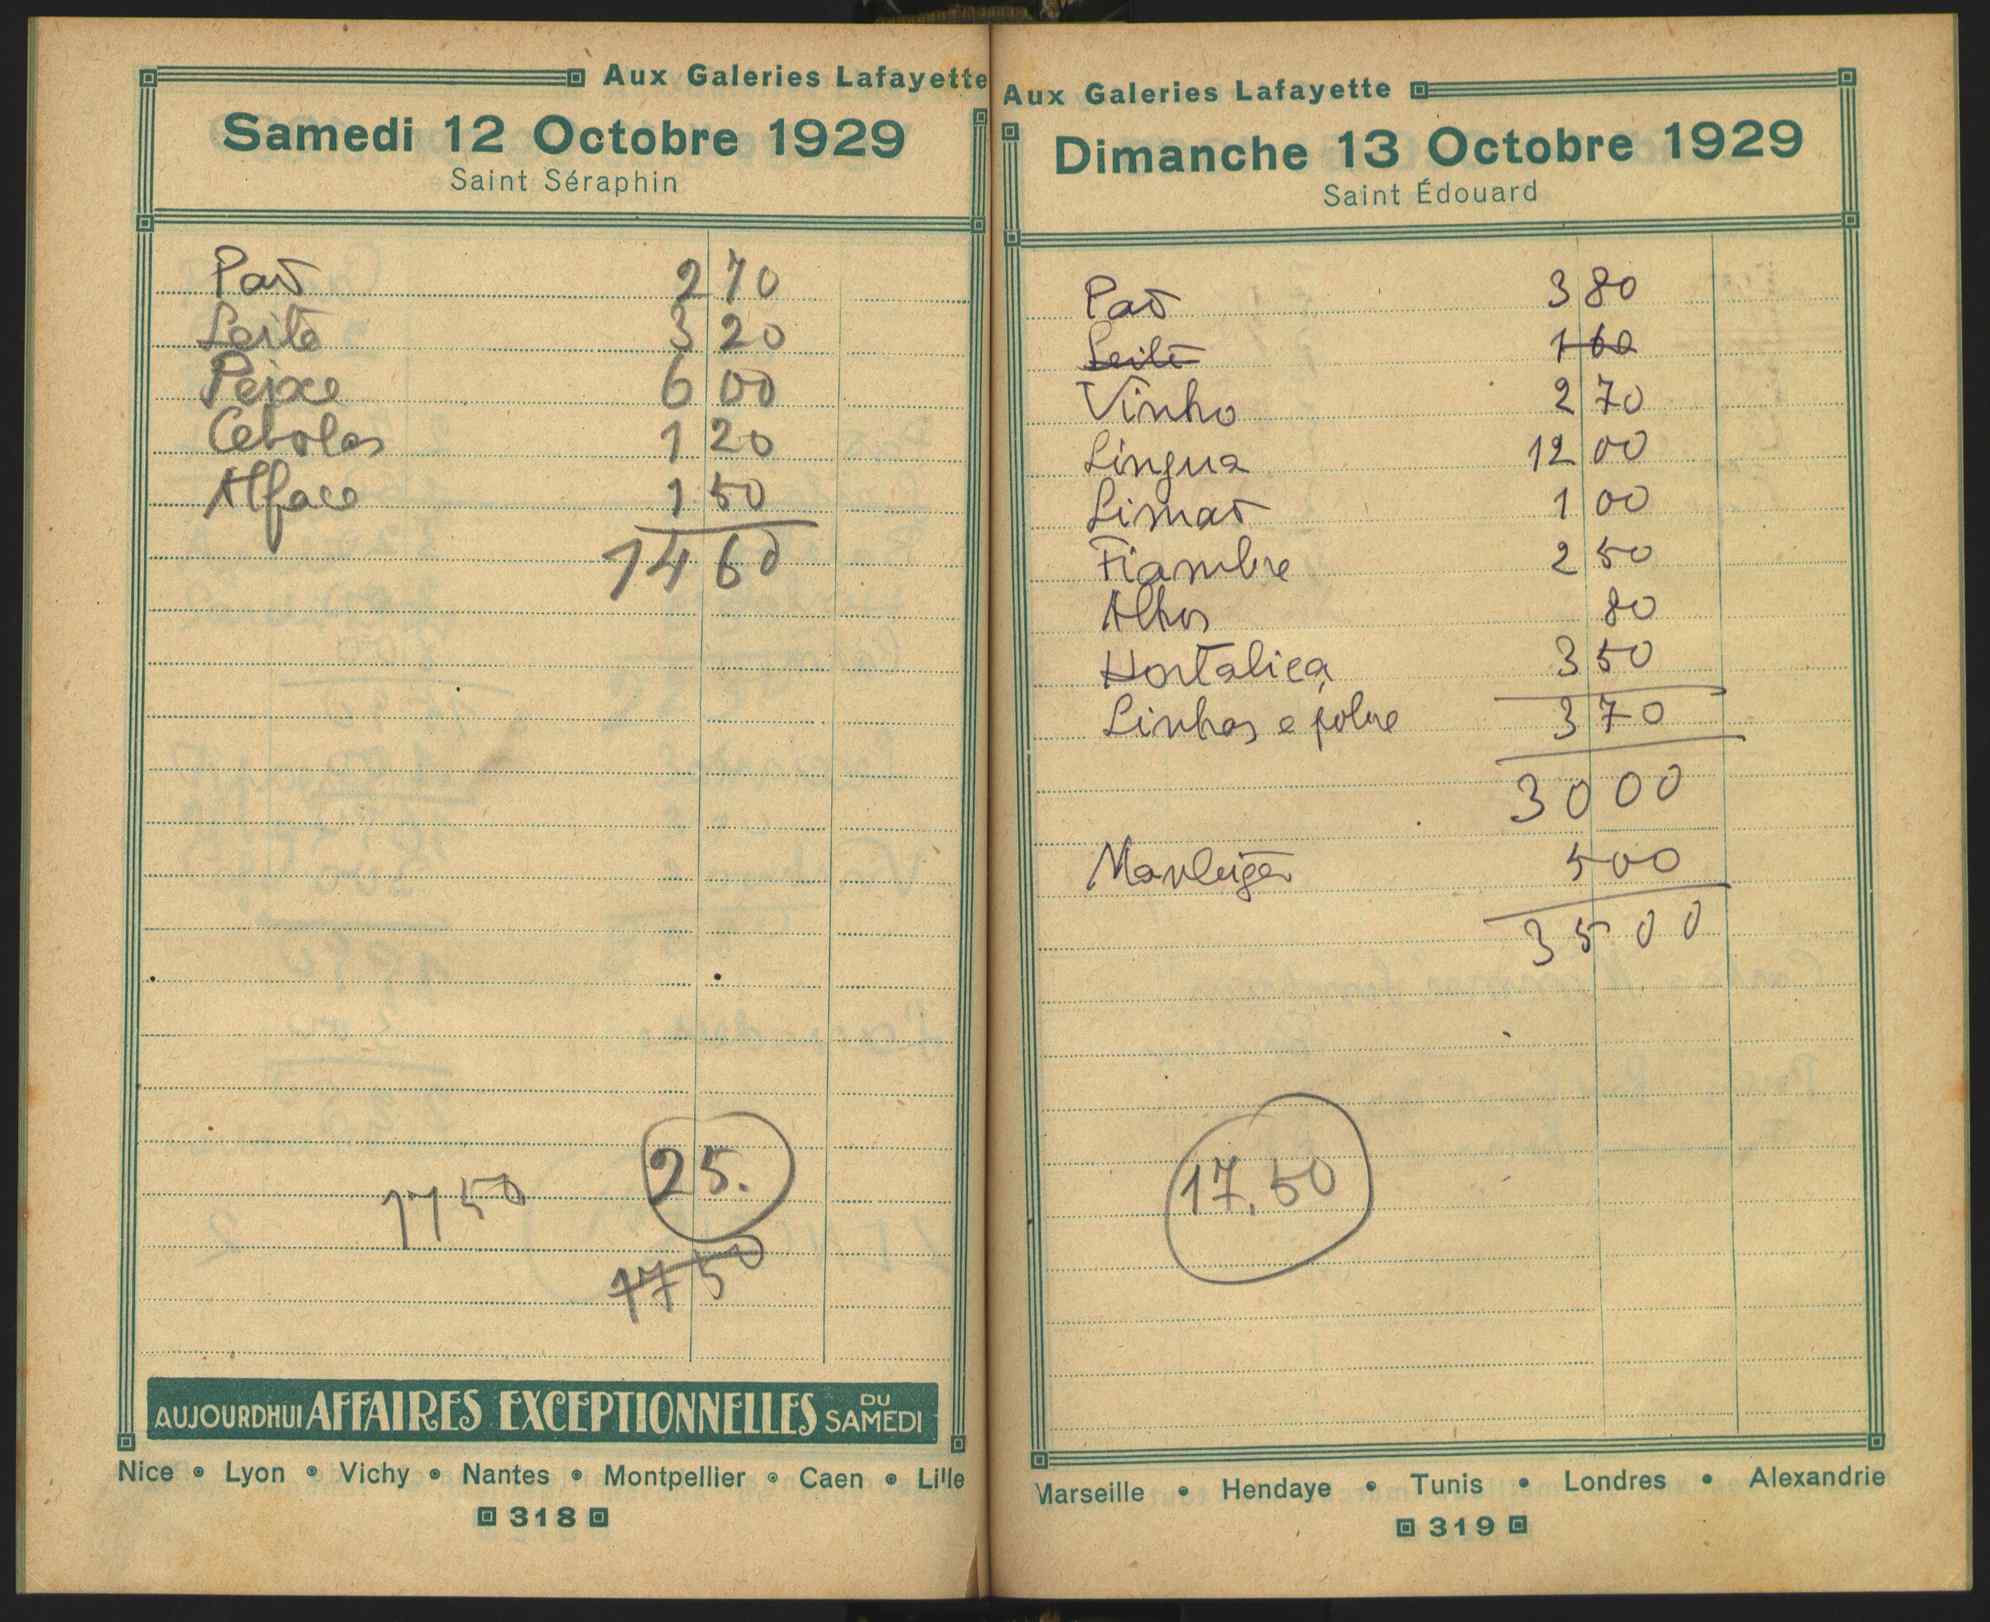 Aux Galeries Lafayette
Samedi 12 Octobre 1929
Saint Séraphin
Pão 2 70
Leite 3 20
Peixe 6 00
Cebolas 1 20
Alface 1 50
14 60
25.
17 50
17 50
AUJOURDHUI AFFAIRES EXCEPTIONNELLES DU SAMEDI
Nice • Lyon • Vichy • Nantes • Montpellier • Caen • Lille
318
Aux Galeries Lafayette
Dimanche 13 Octobre 1929
Saint Édouard
Pão 3 80
Leite 1 60
Vinho 2 70
Lingua 12 00
Limão 1 00
Fiambre 2 50
Alhos 80
Hortaliça 3 50
Linhas e polvre 3 70
30 00
Manteiga 5 00
35 00
17.50
Marseille • Hendaye • Tunis • Londres • Alexandrie
319